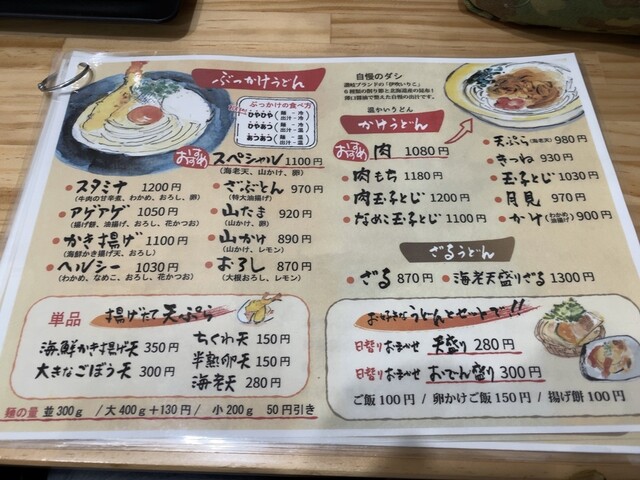 ぶっかけうどん
ぶっかけの食べ方
ひやひや 麺-冷 出汁-冷
ひやあつ 麺-冷 出汁-温
あつあつ 麺-温 出汁-温
おすすめ スペシャル 1100円
(海老天、山かけ、卵)
・スタミナ 1200円
(牛肉の甘辛煮、わかめ、おろし、卵)
・アゲアゲ 1050円
(揚げ餅、油揚げ、おろし、花かつお)
・かき揚げ 1100円
(海鮮かき揚げ天、おろし)
・ヘルシー 1030円
(わかめ、なめこ、おろし、花かつお)
・ざぶとん 970円
(特大油揚げ)
・山たま 920円
(山かけ、卵)
・山かけ 890円
(山かけ、レモン)
・おろし 870円
(大根おろし、レモン)
単品 揚げたて天ぷら
海鮮かき揚げ天 350円
大きなごぼう天 300円
ちくわ天 150円
半熟卵天 150円
海老天 280円
麺の量 並300g /大400g+130円/ 小200g 50円引き
自慢のダシ
讃岐ブランドの「伊吹いりこ」
6種類の削り節と北海道産の昆布!
温かいうどん
かけうどん
おすすめ 肉 1080円
・肉もち 1180円
・肉玉子とじ 1200円
・なめこ玉子とじ 1100円
・天ぷら(海老天) 980円
・きつね 930円
・玉子とじ 1030円
・月見 970円
・かけ(わかめ 油揚げ) 900円
ざるうどん
・ざる 870円 ・海老天盛りざる 1300円
お好きなうどんとセットで!!
日替りおまかせ 天盛り 280円
日替りおまかせ おでん盛り 300円
ご飯100円 / 卵かけご飯150円 / 揚げ餅100円